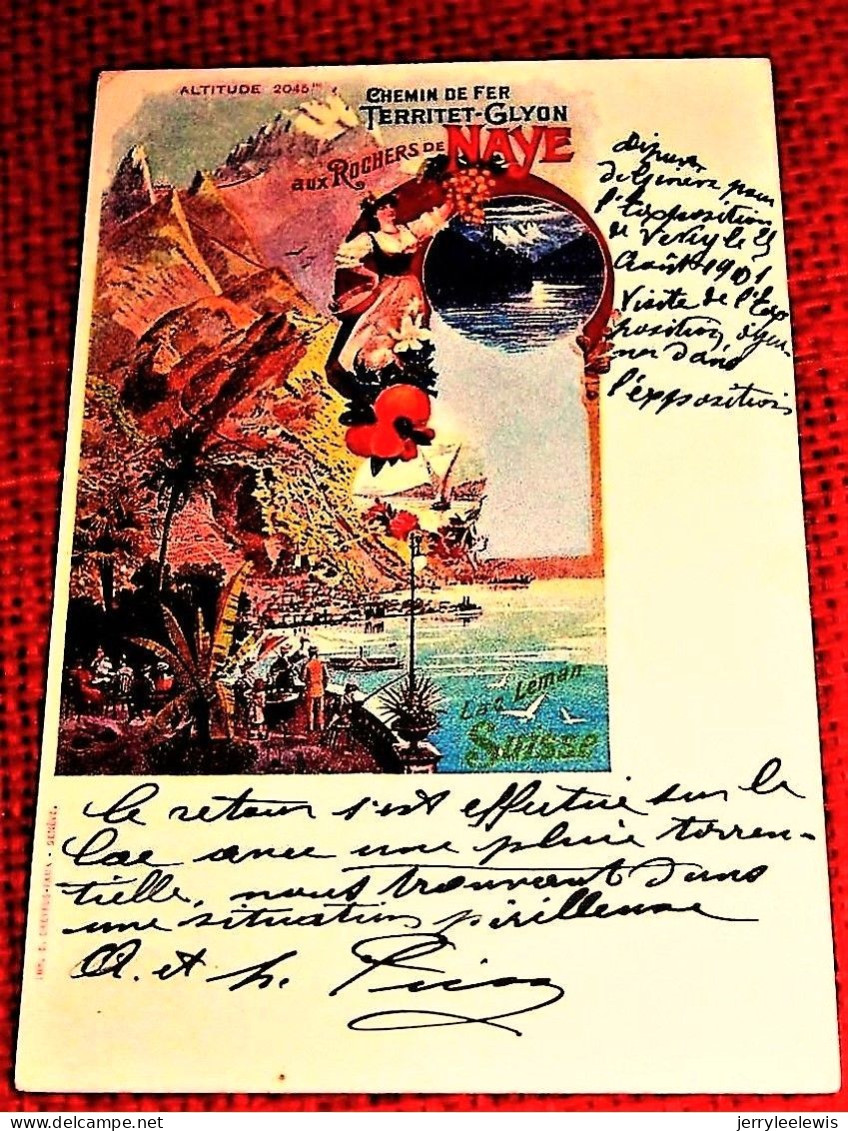 ALTITUDE 2045ᵐ
CHEMIN DE FER
TERRITET-GLYON
AUX ROCHERS DE NAYE
Départ
de Genève pour
l'Exposition
de Vevey le 25
Août 1901
Visite de l'Ex
position, dîjeu-
ner dans
l'exposition
Lac Léman
Suisse
Le retour s'est effectué sur le
lac avec une pluie torren-
tielle, nous trouvant dans
une situation périlleuse
A. et h.
GENÈVE.
jerryleelewis